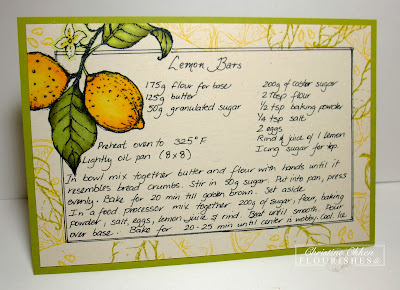 Lemon Bars
175g flour for base
125g butter
50g granulated sugar
200g of castor sugar
2 Tbsp flour
1/2 tsp baking powder
1/4 tsp salt
2 eggs
Rind & juice of 1 lemon
Icing sugar for top.
Preheat oven to 325°F
Lightly oil pan (8x8)
In bowl mix together butter and flour with hands until it
resembles bread crumbs. Stir in 50g sugar. Put into pan, press
evenly. Bake for 20 min till golden brown. Set aside
In a food processor mix together 200g of sugar, flour, baking
powder, salt, eggs, lemon juice & rind. Beat until smooth. Pour
over base. Bake for 20-25 min until center is wobbly. Cool
Christine Okken
FLOURISHES